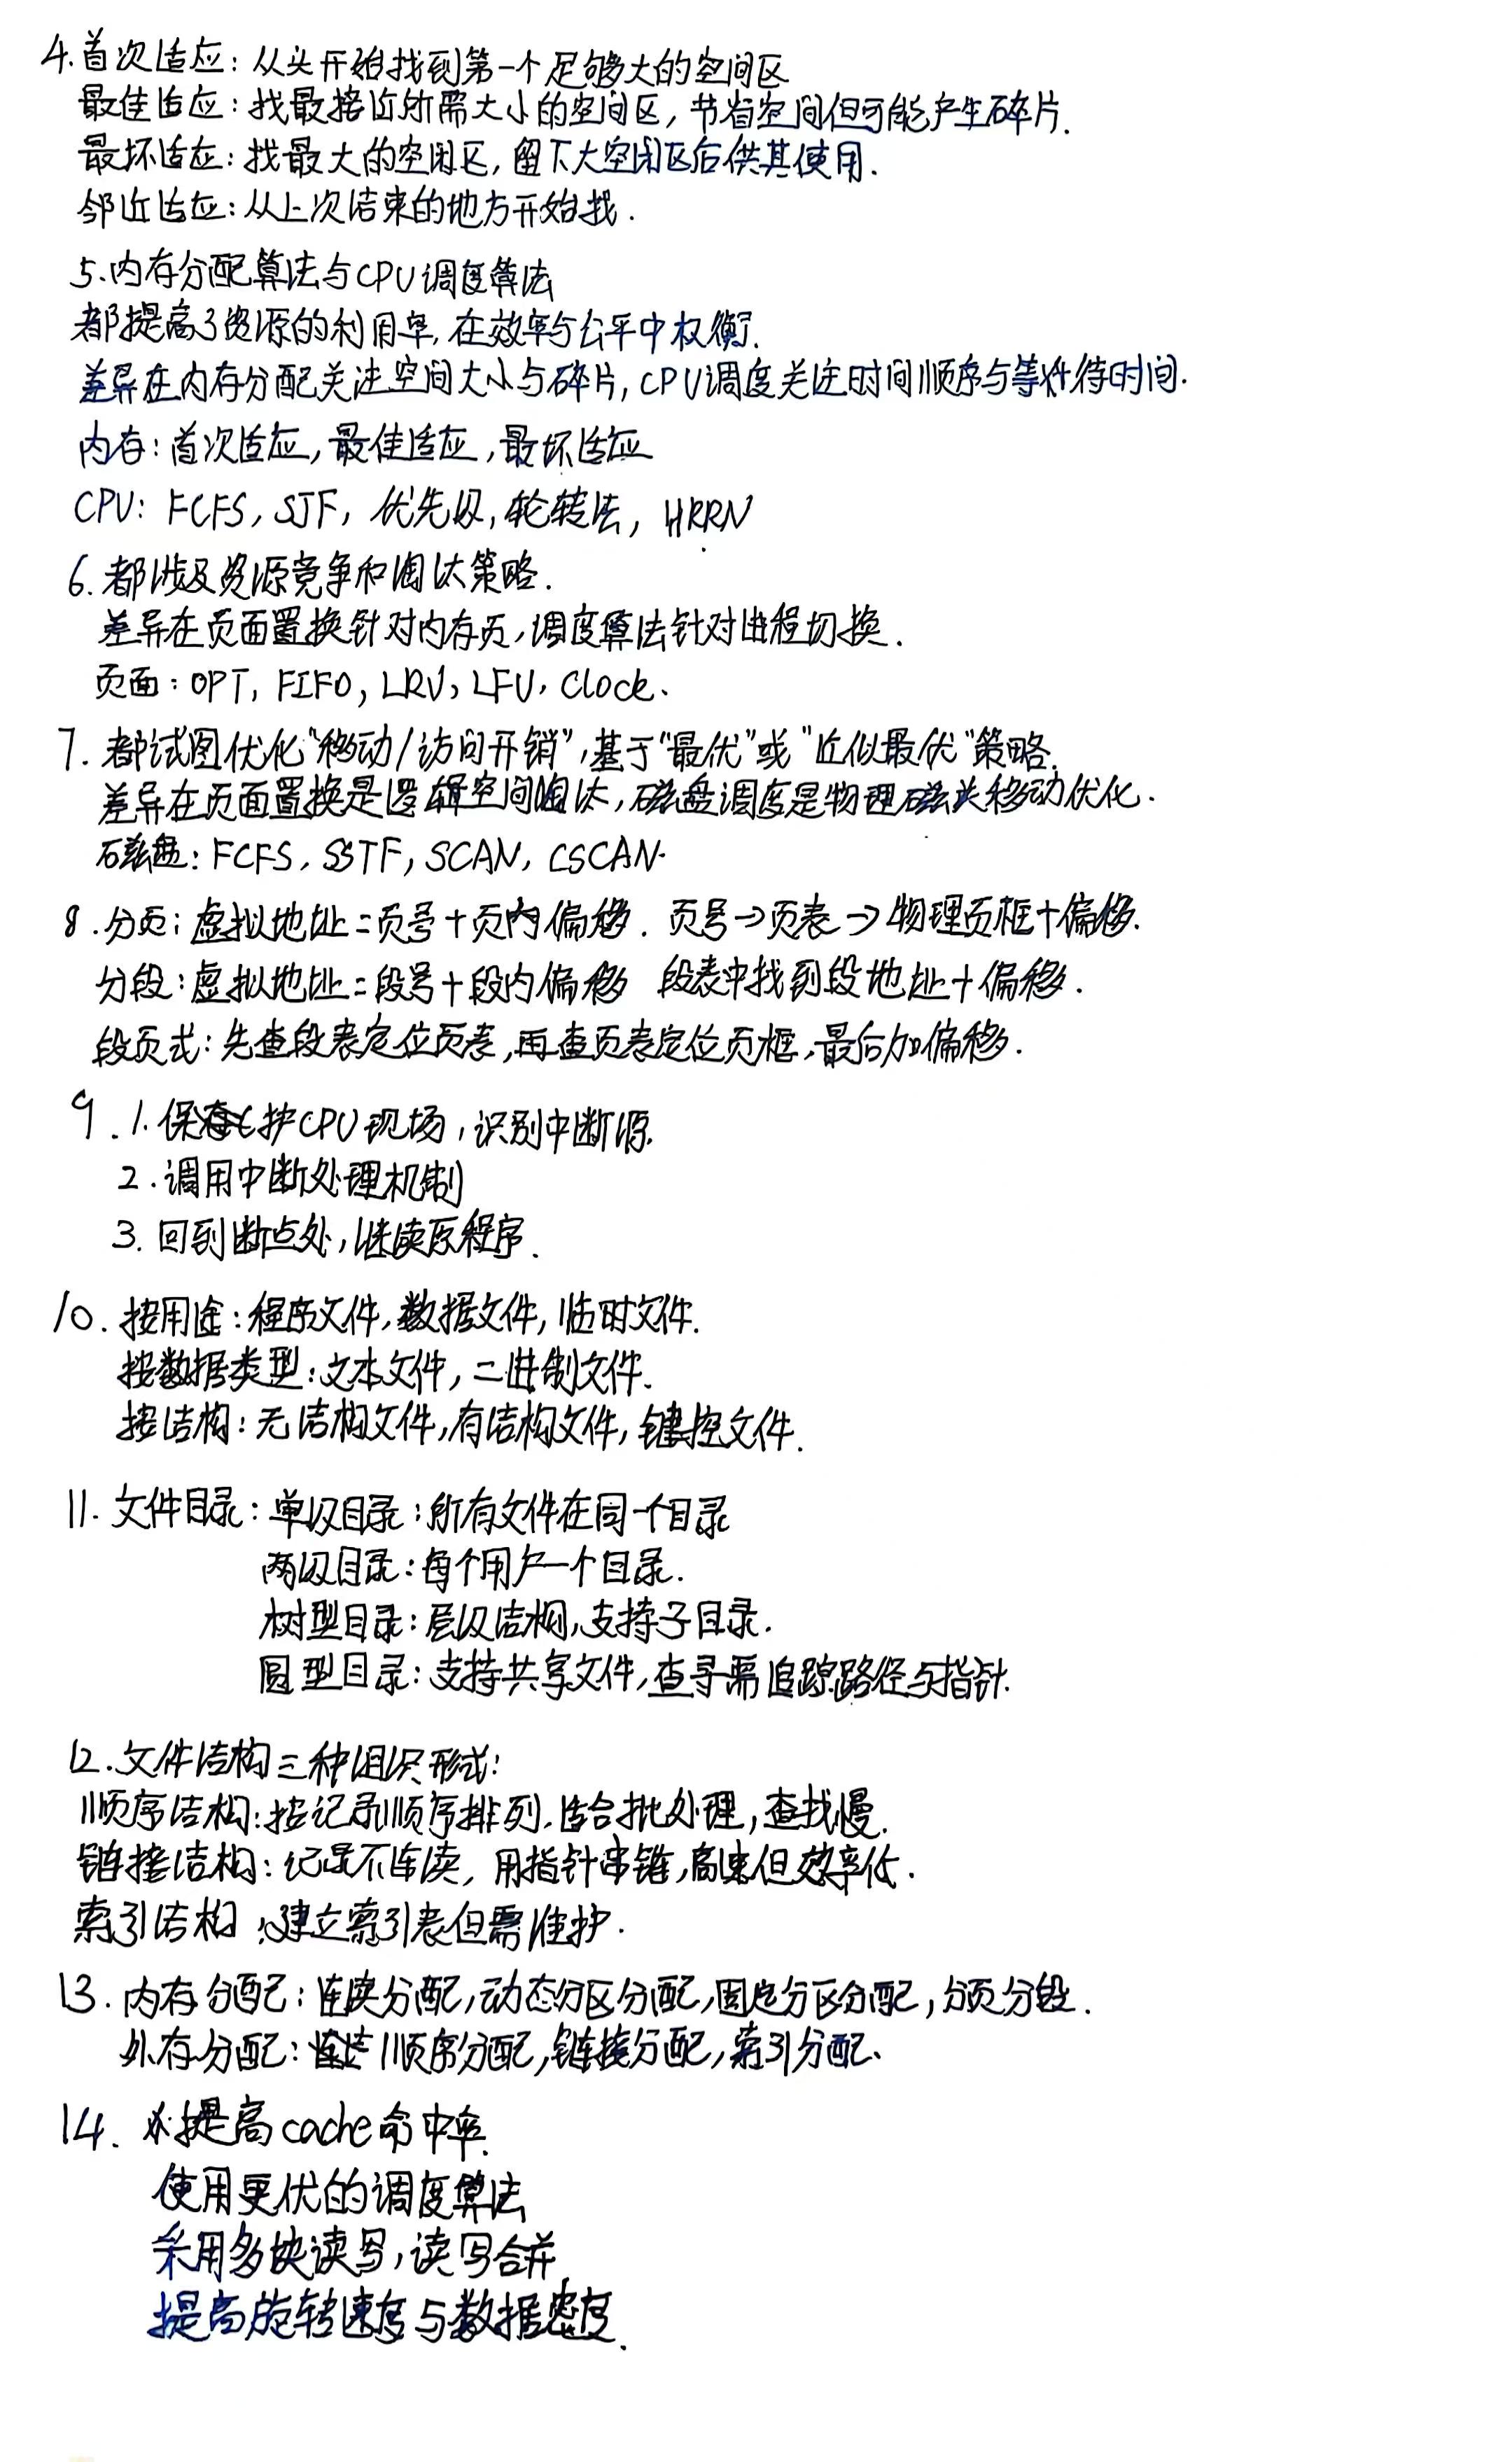 4.首次适应：从头开始找到第一个足够大的空间区
最佳适应：找最接近所需大小的空间区，节省空间但可能产生碎片.
最坏适应：找最大的空闲区，留下大空闲区后供其使用.
邻近适应：从上次结束的地方开始找.
5.内存分配算法与CPU调度算法
都提高了资源的利用率,在效率与公平中权衡.
差异在内存分配关注空间大小与碎片,CPU调度关注时间顺序与等待时间.
内存：首次适应,最佳适应,最坏适应
CPU: FCFS, SJF, 优先级,轮转法, HRRN
6.都涉及资源竞争和淘汰策略.
差异在页面置换针对内存页,调度算法针对进程切换.
页面：OPT, FIFO, LRU, LFU, Clock、
7.都试图优化“移动/访问开销”,基于“最优”或“近似最优”策略.
差异在页面置换是逻辑空间淘汰,磁盘调度是物理磁头移动优化.
磁盘：FCFS, SSTF, SCAN, CSCAN.
8.分页：虚拟地址=页号+页内偏移. 页号→页表→物理页框+偏移.
分段：虚拟地址=段号+段内偏移 段表中找到段地址+偏移.
段页式：先查段表定位页表,再查页表定位页框,最后加偏移.
9.1.保护CPU现场,识别中断源.
2.调用中断处理机制
3.回到断点处,继续原程序.
10.按用途：程序文件,数据文件,临时文件.
按数据类型：文本文件,二进制文件.
按结构：无结构文件,有结构文件,键控文件.
11.文件目录：单级目录：所有文件在同一个目录
两级目录：每个用户一个目录.
树型目录：层级结构,支持子目录.
圆型目录：支持共享文件,查寻需追踪路径与指针.
12.文件结构三种组织形式：
顺序结构：按记录顺序排列.适合批处理,查找慢.
链接结构：记录不连续,用指针串链,高速但效率低.
索引结构：建立索引表但需维护.
13.内存分配：连续分配,动态分区分配,固定分区分配,分页分段.
外存分配：顺序分配,链接分配,索引分配.
14.提高cache命中率.
使用更优的调度算法
采用多块读写,读写合并
提高旋转速度与数据密度.